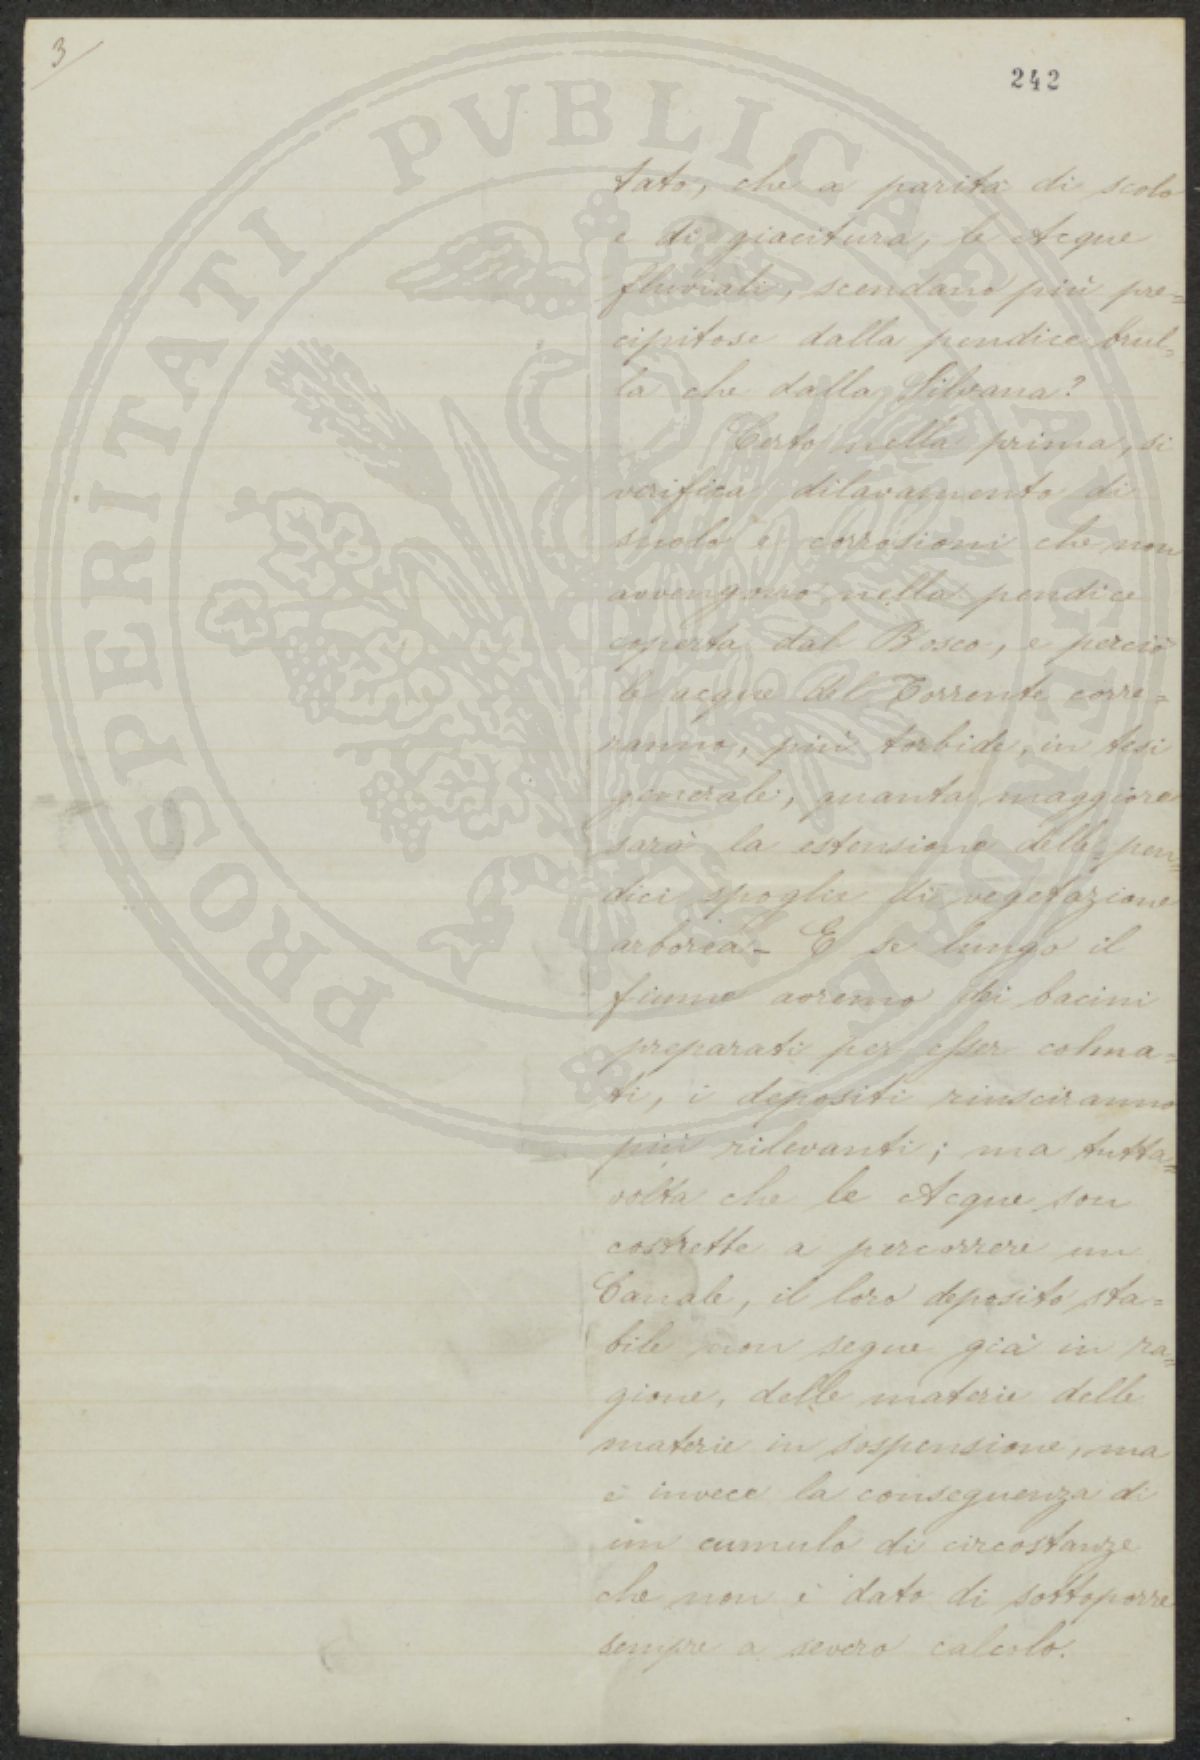 3
242
tato, che a parità di scolo
e di giacitura, le Acque
fluviali, scendano più pre=
cipitose dalla pendice brul=
la che dalla Silvana?
Certo nella prima, si
verifica dilavamento di
suolo e corrosioni che non
avvengono nella pendice
coperta dal Bosco, e perciò
le acque del Torrente corre=
ranno, più torbide, in tesi
generale, quanta maggiore
sarà la estensione delle pen=
dici spoglie di vegetazione
arborea - E se lungo il
fiume avremo dei bacini
preparati per esser colma=
ti, i depositi riusciranno
più rilevanti; ma tutta=
volta che le Acque son
costrette a percorrere un
Canale, il loro deposito sta=
bile non segue già in ra=
gione, delle materie delle
materie in sospensione, ma
è invece la conseguenza di
un cumulo di circostanze
che non è dato di sottoporre
sempre a severo calcolo.
PROSPERITATI PVBLICAE AVGENDAE